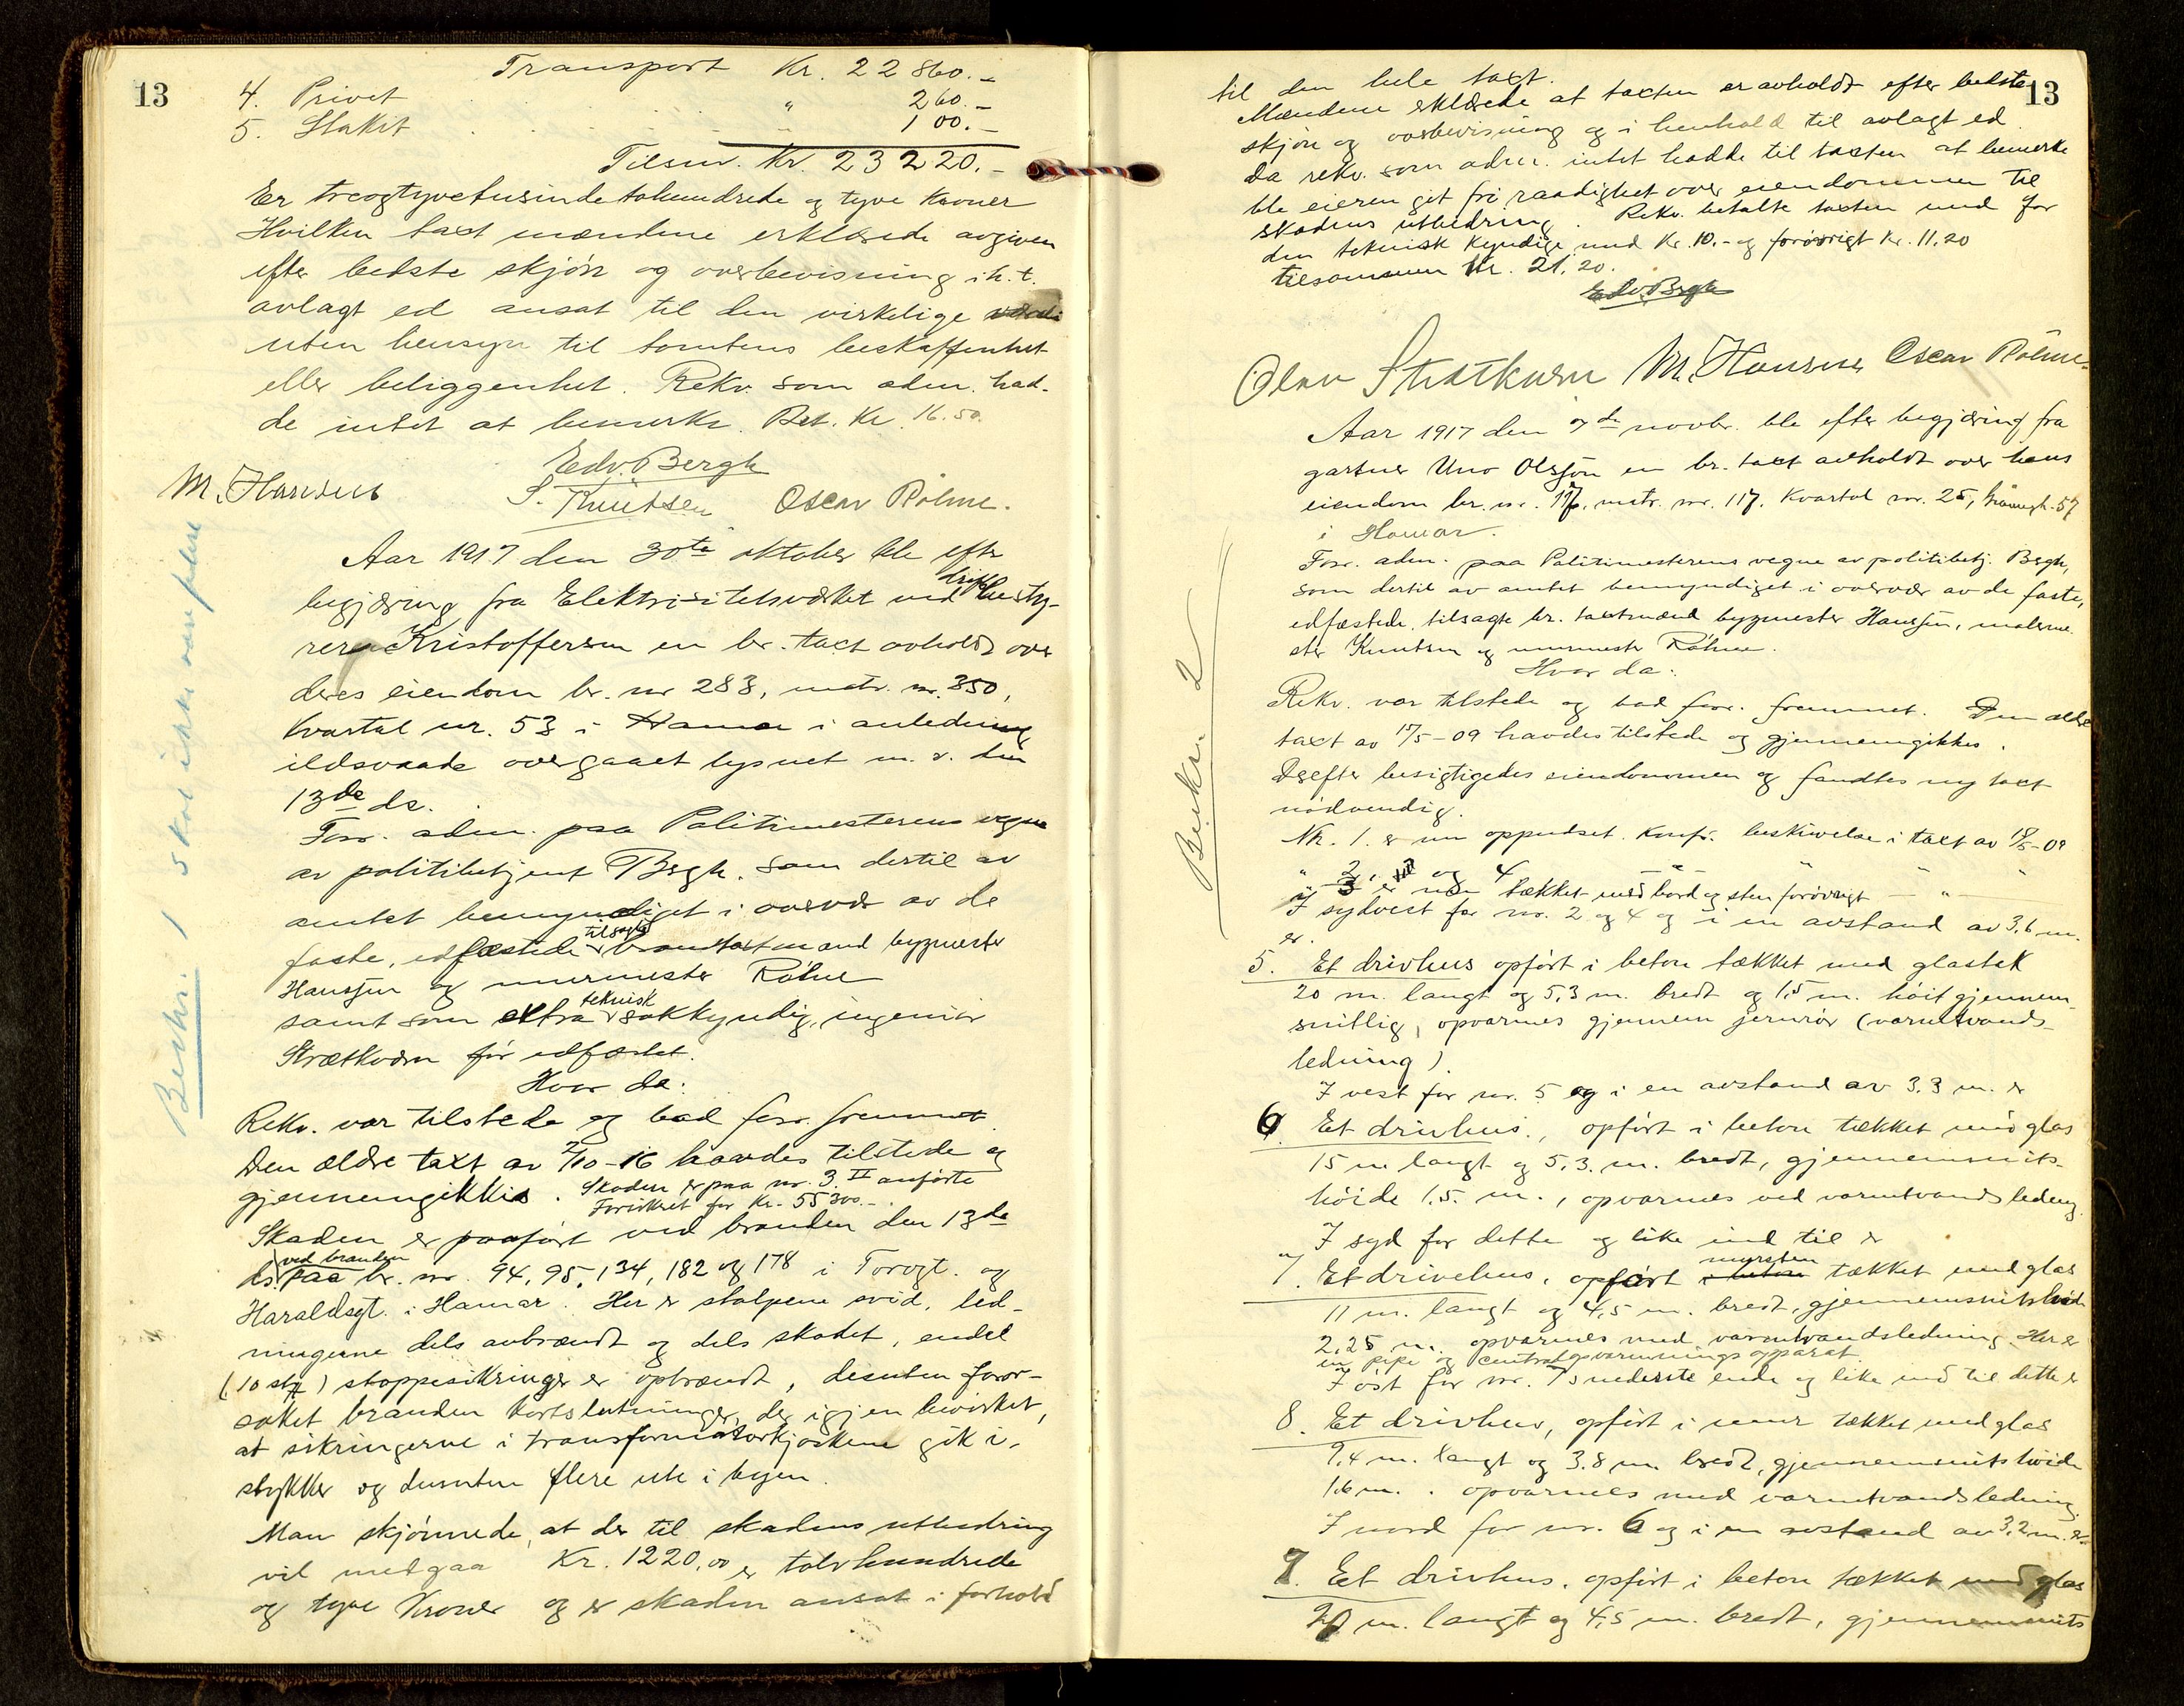 13
Transport Kr. 22 860.-
4. Privet . . . . . " 260.-
5. Stakit . . . . . " 100.-
Tilsm. Kr. 23 220.-
Er treogtyvetusinde tohundrede og tyve Kroner
Hvilken taxt mændene erklærede avgiven
efter bedste skjön og overbevisning i h. t.
avlagt ed ansat til den virkelige værdi
uten hensyn til tomtens beskaffenhet
eller beliggenhet. Rekv. som adm. had-
de intet at bemerke. Bet. Kr. 16.50.
Edv. Bergh
M. Hansen S. Knutsen Oscar Röhne.
Aar 1917 den 30te oktober ble efter
begjæring fra Elektrisitetsverket ved driftbesty-
rer Kristoffersen en br. taxt avholdt over
deres eiendom br. nr 283, matr. nr. 350,
Kvartal nr. 53 i Hamar i anledning
ildsvaade overgaaet lysnet m. v. den
13de ds.
Forr. adm. paa Politimesterens vegne
av politibetjent Bergh, som dertil av
amtet bemyndiget i overvær av de
faste, edfæstede tilsagte brandtaxtmænd bygmester
Hanssen og murmester Röhne
samt som extra teknisk sakkyndig, ingeniör
Strætkvern för edfæstet.
Hvor da:
Rekv. var tilstede og bad forr. fremmet
Den ældre taxt av 2/10-16 havdes tilstede og
gjennemgikkes. Skaden er paa nr. 3 II anförte
Forsikret for Kr. 55300.-
Skaden er paafört ved branden den 13de
ds. ved branden paa br. nr. 94, 95, 134, 182 og 178 i Torvgt. og
Haraldsgt. i Hamar. Her er stolpene svid, led-
ningerne dels avbrændt og dels skadet, endel
(10 stk) stoppesikringer er opbrændt, desuten foror-
saket branden kortslutninger, der igjen bevirket,
at sikringerne i transformatorkjoskene gik i-
stykker og desuten flere ute i byen.
Man skjönnede, at der til skadens utbedring
vil medgaa Kr. 1220,00 er tolvhundrede
og tyve Kroner og er skaden ansat i forhold
Beskr. 1 skal ikke være flere
13
til den hele taxt.
Mændene erklærede at taxten er avholdt efter bedste
skjön og overbevisning og i henhold til avlagt ed
Da rekv. som adm. intet hadde til taxten at bemerke
ble eieren git fri raadighet over eiendommen til
skadens utbedring. Rekv. betalte taxten med for
den teknisk kyndige med Kr. 10.- og forövrigt Kr. 11,20
tilsammen Kr. 21,20.
Edv. Bergh
Olav Strætkvern M. Hansen Oscar Röhne.
Aar 1917 den 7de novbr. ble efter begjæring fra
gartner Uno Olsson en br. taxt avholdt over hans
eiendom br. nr. 117, matr. nr. 117, Kvartal nr. 25, Grönnegt. 57
i Hamar.
Forr. adm. paa Politimesterens vegne av politibetj. Bergh,
som dertil av amtet bemyndiget i overvær av de faste,
edfæstede, tilsagte br. taxtmænd bygmester Hanssen, malerme-
ster Knutsen og murmester Röhne.
Hvor da:
Rekv. var tilstede og bad forr. fremmet. Den ældre
taxt av 15/5-09 havdes tilstede og gjennemgikkes.
Derefter besigtigedes eiendommen og fandtes ny taxt
nödvendig.
Nr. 1. er nu oppudset. Konfr. beskrivelse i taxt av 15/5-09
" 2, og 4 - " - " "
" 3 er nu tækket med bord og sten forövrigt - " -
I sydvest for nr. 2 og 4 og i en avstand av 3,6 m.
er.
5. Et drivhus opfört i beton tækket med glastak
20 m. langt og 5,3 m. bredt og 1,5 m. höit gjennem-
snitlig, opvarmes gjennem jernrör (varmtvands-
ledning).
I vest for nr. 5 og i en avstand av 3.3 m. er
6. Et drivhus., opfört i beton tækket med glas
15 m langt og 5,3. m. bredt, gjennemsnits-
höide 1.5. m., opvarmes ved varmtvandsledning.
I syd for dette og like ind til er
7. Et drivehus, opfört i beton mursten tækket med glas
11 m. langt og 4,5 m. bredt, gjennemsnitshöide
2,25 m. opvarmes med varmtvandsledning. Her er
en pipe og centralopvarmningsapparat
I öst for nr. 7's nederste ende og like ind til dette er
8. Et drivhus, opfört i mur tækket med glas
9,4 m. langt og 3.8 m bredt, gjennemsnitshöide
1.6 m. . opvarmes med varmtvandsledning.
I nord for nr. 6 og i en avstand av 3,2 m. er
9. Et drivhus, opfört i beton tækket med glas
20 m. langt og 4,5 m. bredt, gjennemsnits
Beskr. 2